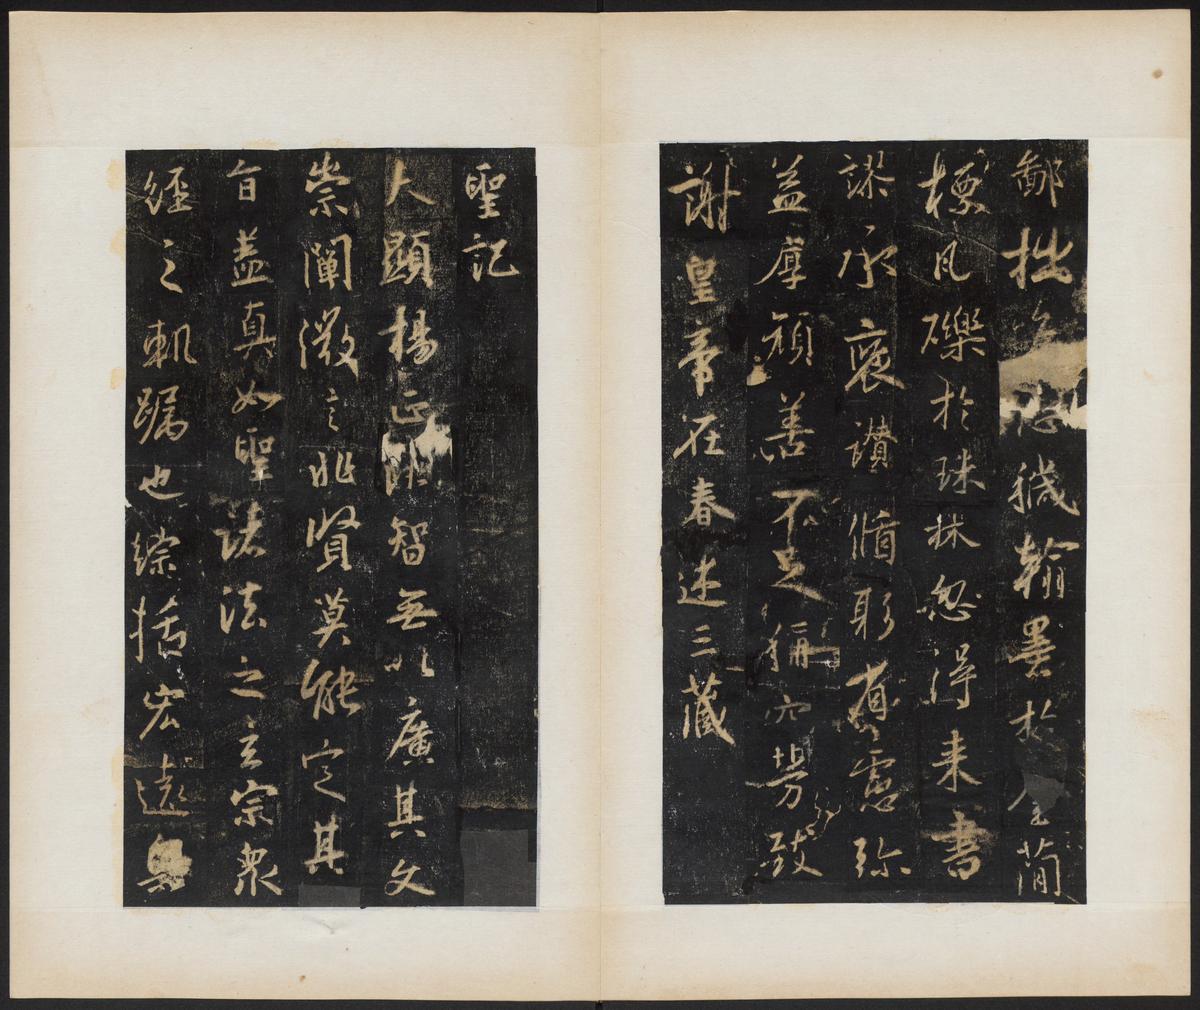 鄙拙恐穢翰墨於金簡
標瓦礫於珠林忽得来書
謬承褒讃循躬省慮弥
益厚顔善不足稱空勞致
謝皇帝在春述三藏
聖記
夫顯揚正非智無以廣其文
崇闡微言非賢莫能定其
旨蓋真如聖諸法之玄宗衆
經之軌躅也綜括宏遠奥